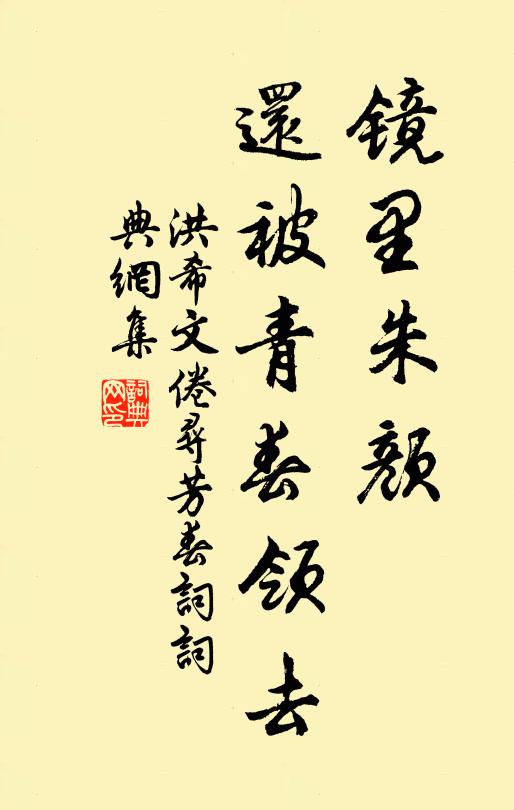 镜里朱颜
還被青春领去
洪希文倦尋芳春詞詞
典網集
詞典
网印